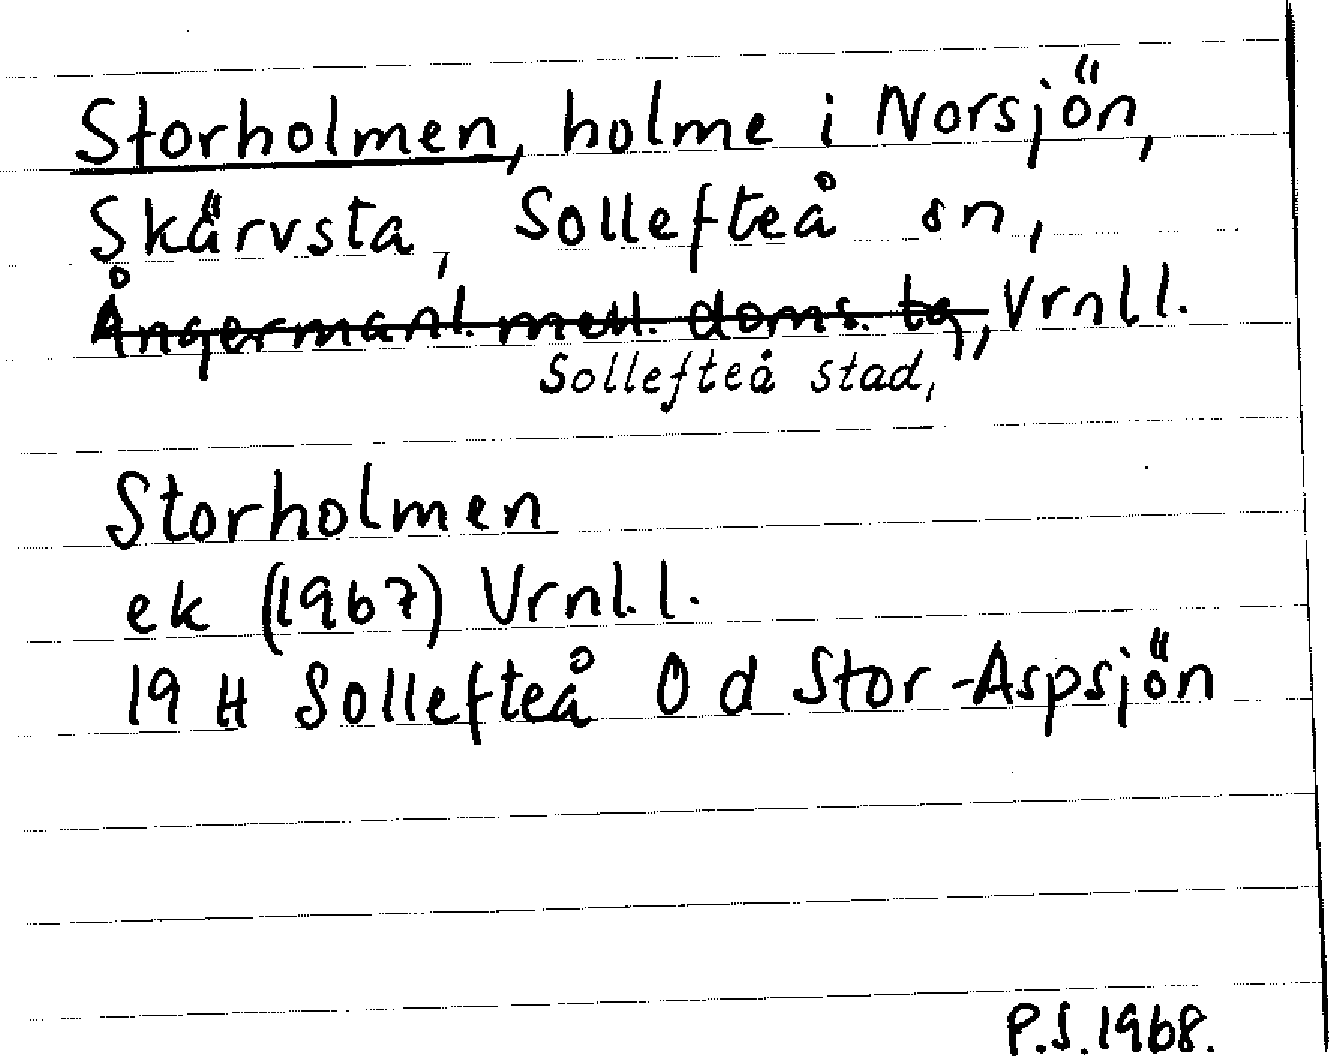 Storholmen, holme i Norsjön,
Skärvsta, Sollefteå sn,
Ångermanl. mell. doms. tg, Vrnll.
Sollefteå stad,
Storholmen
ek (1967) Vrnl.l.
19 H Sollefteå 0 d Stor-Aspsjön
P.S.1968.